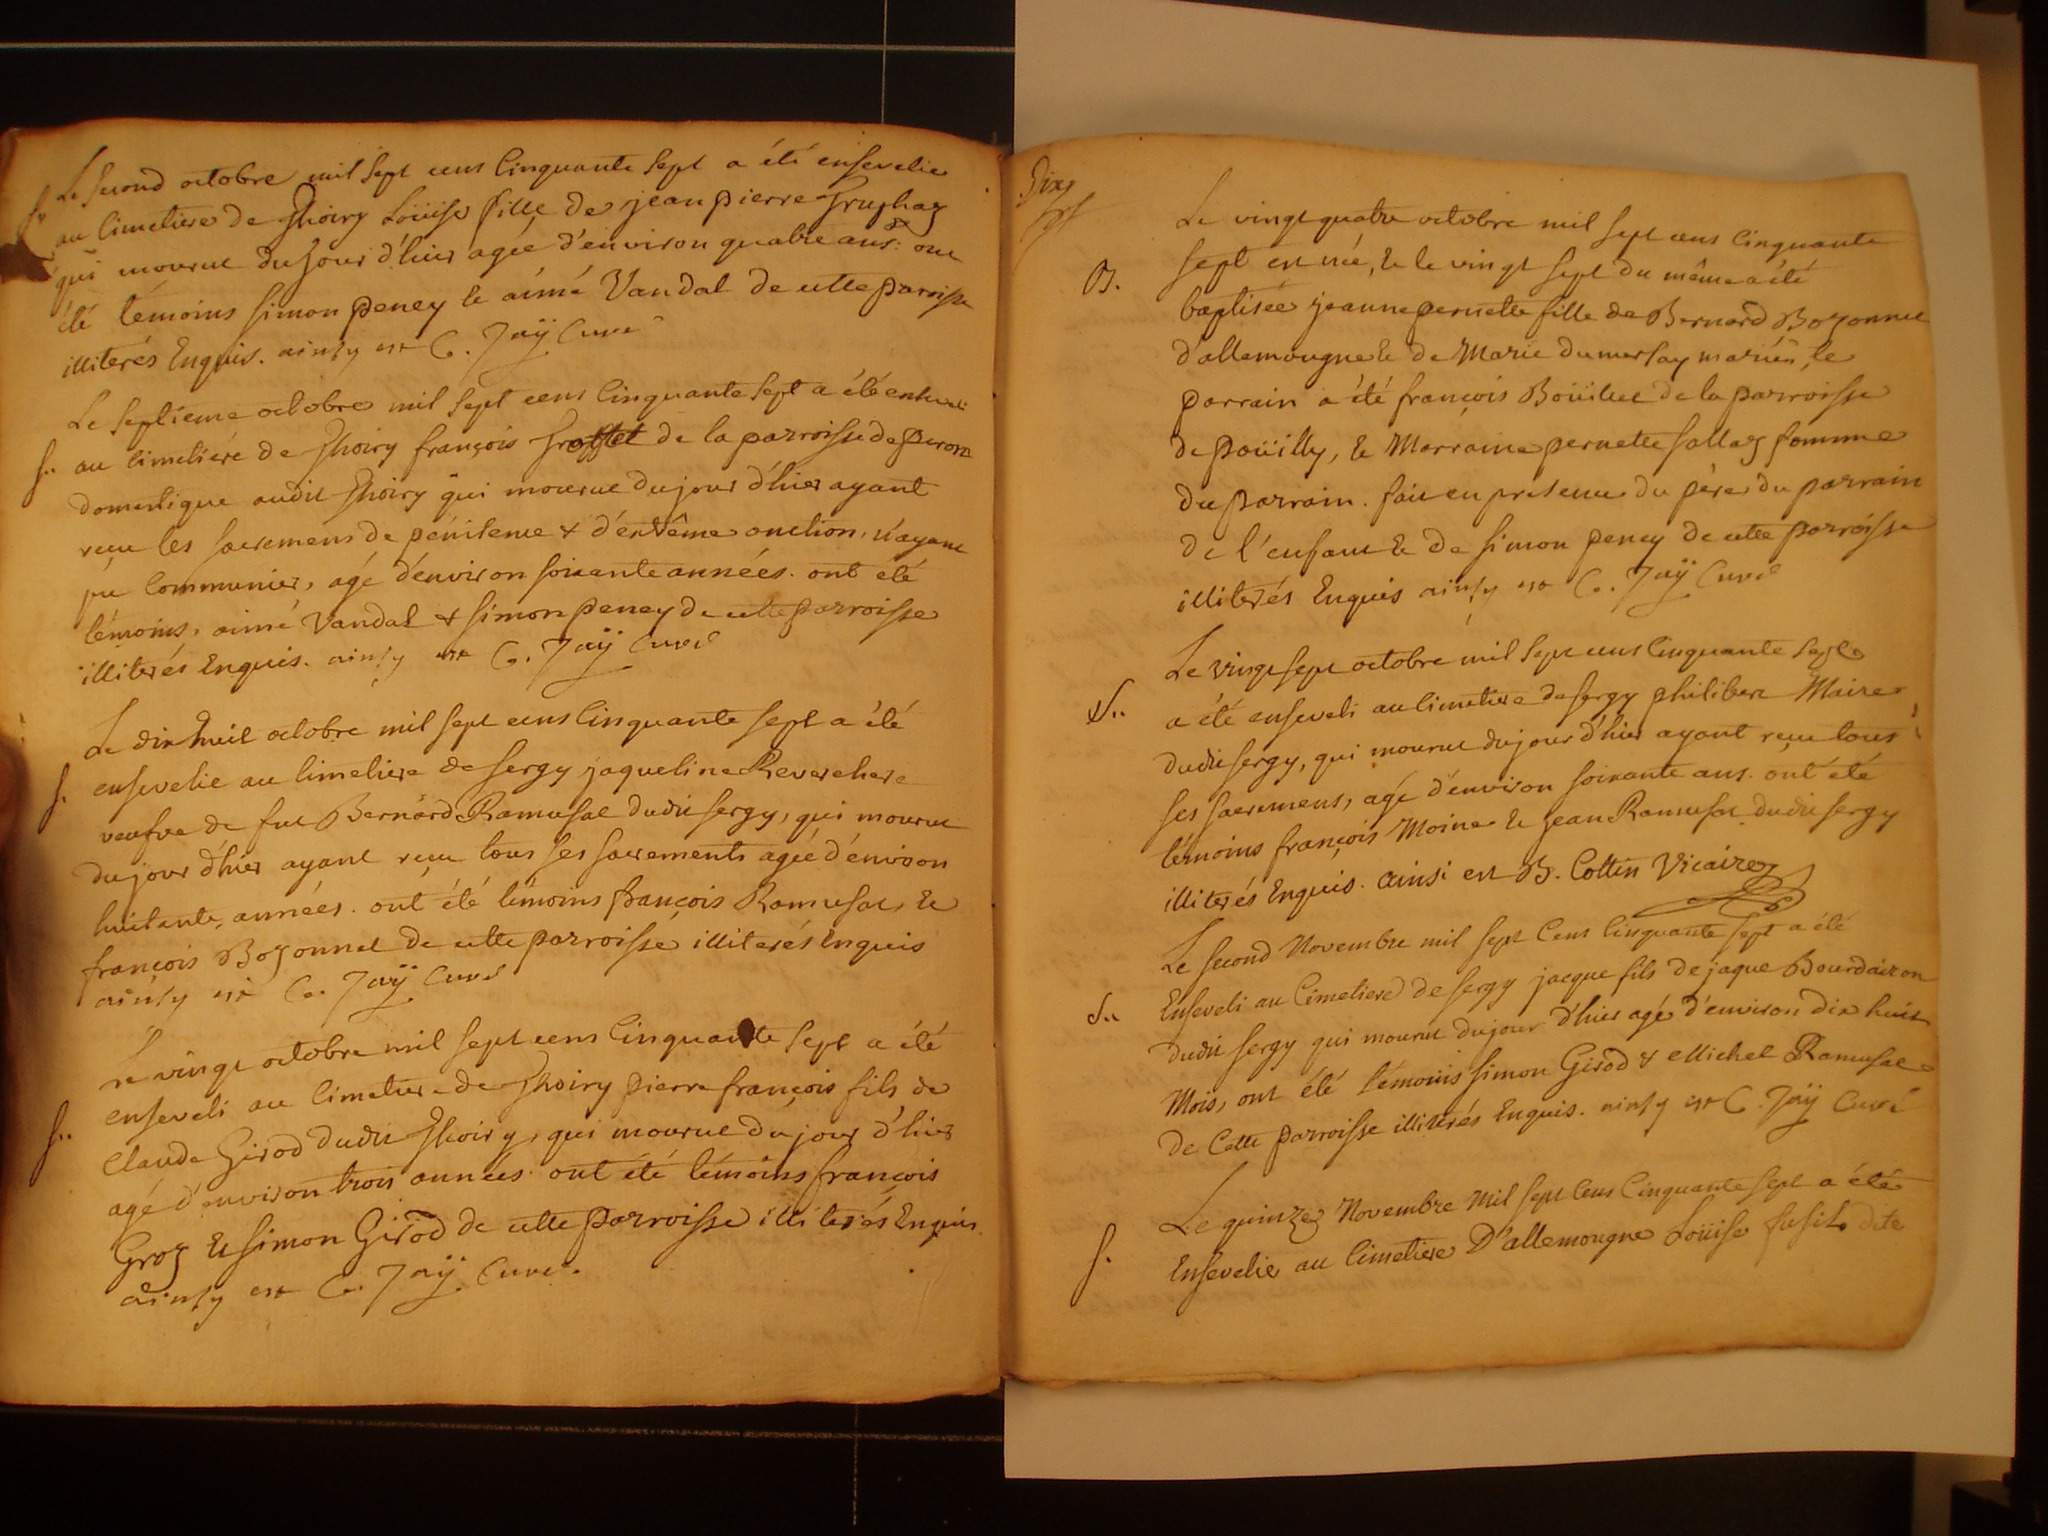 S.
Le second octobre mil sept cens Cinquante sept a été ensevelie
au Cimetiere de Thoiry Loüise fille de jean pierre
qui mourut du jour d'hier agée d'environ quatre ans. ont
été témoins simon peney et aimé Vandal de cette parroisse
illiterés Enquis. ainsy est C. Jaÿ Curé
Le septieme octobre mil sept cens Cinquante sept a été enseveli
S.. au Cimetiére de Thoiry françois de la parroisse de peron
domestique audit Thoiry qui mourut du jour d'hier ayant
reçu les sacremens de pénitence & d'extrême onction, n'ayant
pu Communier, agé d'environ soixante années. ont été
témoins, aimé Vandal & simon peney de cette parroisse
illiterés Enquis. ainsy est C. Jaÿ Curé
Le dix huit octobre mil sept cens Cinquante sept a été
S. ensevelie au Cimetiere de sergy jaqueline Reverchere
veufve de fut Bernard Ramusat dudit sergy, qui mourut
du jour d'hier ayant reçu tous ses sacrements agée d'environ
huitante années. ont été témoins françois Ramusat, et
françois Bozonnet de cette parroisse illiterés Enquis
ainsy est C. Jaÿ Curé
Le vingt octobre mil sept cens Cinquante sept a été
S.. enseveli au Cimetiere de Thoiry pierre françois fils de
Claude Girod dudit Thoiry, qui mourut du jour d'hier
agé d'environ trois années. ont été témoins françois
Groz et simon Girod de cette parroisse illiterés Enquis
ainsy est C. Jaÿ Curé.
Dix
Le vingt quatre octobre mil sept cens Cinquante
B. sept est née, et le vingt sept du même a été
baptisée jeanne pernette fille de Bernard Bozonnet
d'allemougne et de Marie dumersay mariés, le
parrain a été françois Boüilliet de la parroisse
de poüilly, et Marraine pernette sallaz femme
du parrain. fait en presence du pére du parrain
de l'enfant et de simon peney de cette parroisse
illiterés Enquis ainsy est C. Jaÿ Curé
Le vingt sept octobre mil sept cens Cinquante sept
S.. a été enseveli au Cimetiere de sergy philibert Maire
dudit sergy, qui mourut du jour d'hier ayant reçu tous
ses sacremens, agé d'environ soixante ans. ont été
témoins françois Moine et jean Ramusat dudit sergy
illiterés Enquis. ainsi est B. Cottin Vicaire
Le second Novembre mil sept Cens Cinquante sept a été
S.. Enseveli au Cimetiere de sergy jacque fils de jaque Bourdairon
dudit sergy qui mourut du jour d'hier agé d'environ dix huit
Mois, ont été témoins simon Girod & Michel Ramusat
de Cette parroisse illiterés Enquis. ainsy est C. Jaÿ Curé
Le quinze Novembre Mil sept Cens Cinquante sept a été
S. Ensevelie au Cimetiere D'allemougne Loüise dite